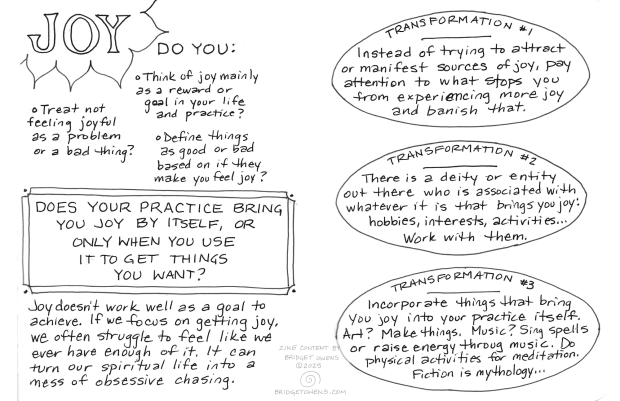 JOY
DO YOU:
Think of joy mainly
as a reward or
goal in your life
and practice?
Treat not
feeling joyful
as a problem
or a bad thing?
Define things
as good or bad
based on if they
make you feel joy?
DOES YOUR PRACTICE BRING
YOU JOY BY ITSELF, OR
ONLY WHEN YOU USE
IT TO GET THINGS
YOU WANT?
Joy doesn't work well as a goal to
achieve. If we focus on getting joy,
we often struggle to feel like we
ever have enough of it. It can
turn our spiritual life into a
mess of obsessive chasing.
ZINE CONTENT BY
BRIDGET OWENS
©2025
BRIDGETOWENS.COM
TRANSFORMATION #1
Instead of trying to attract
or manifest sources of joy, pay
attention to what stops you
from experiencing more joy
and banish that.
TRANSFORMATION #2
There is a deity or entity
out there who is associated with
whatever it is that brings you joy:
hobbies, interests, activities...
Work with them.
TRANSFORMATION #3
Incorporate things that bring
you joy into your practice itself.
Art? Make things. Music? Sing spells
or raise energy throug music. Do
physical activities for meditation.
Fiction is mythology...